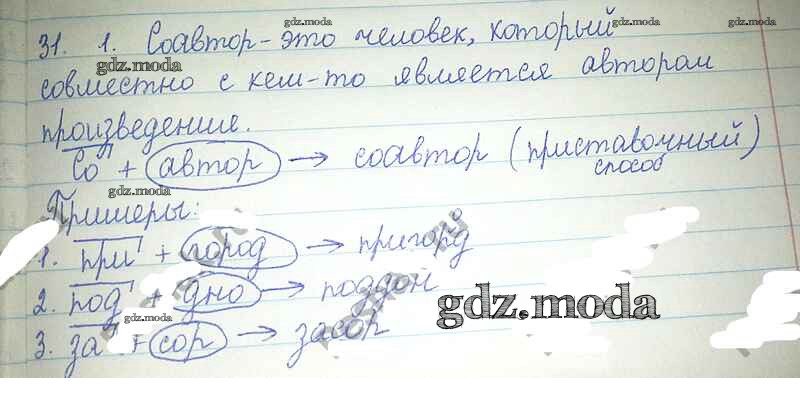 31. 1. Соавтор - это человек, который
совместно с кем-то является автором
произведение.
Со + автор → соавтор (приставочный)
способ
Примеры:
1. при + город → пригорд
о
2. под + дно → поддон
3. за + сор → засор
gdz.moda
gdz.moda
gdz.moda
gdz.moda
gdz.moda
gdz.moda
gdz.moda
gdz.moda